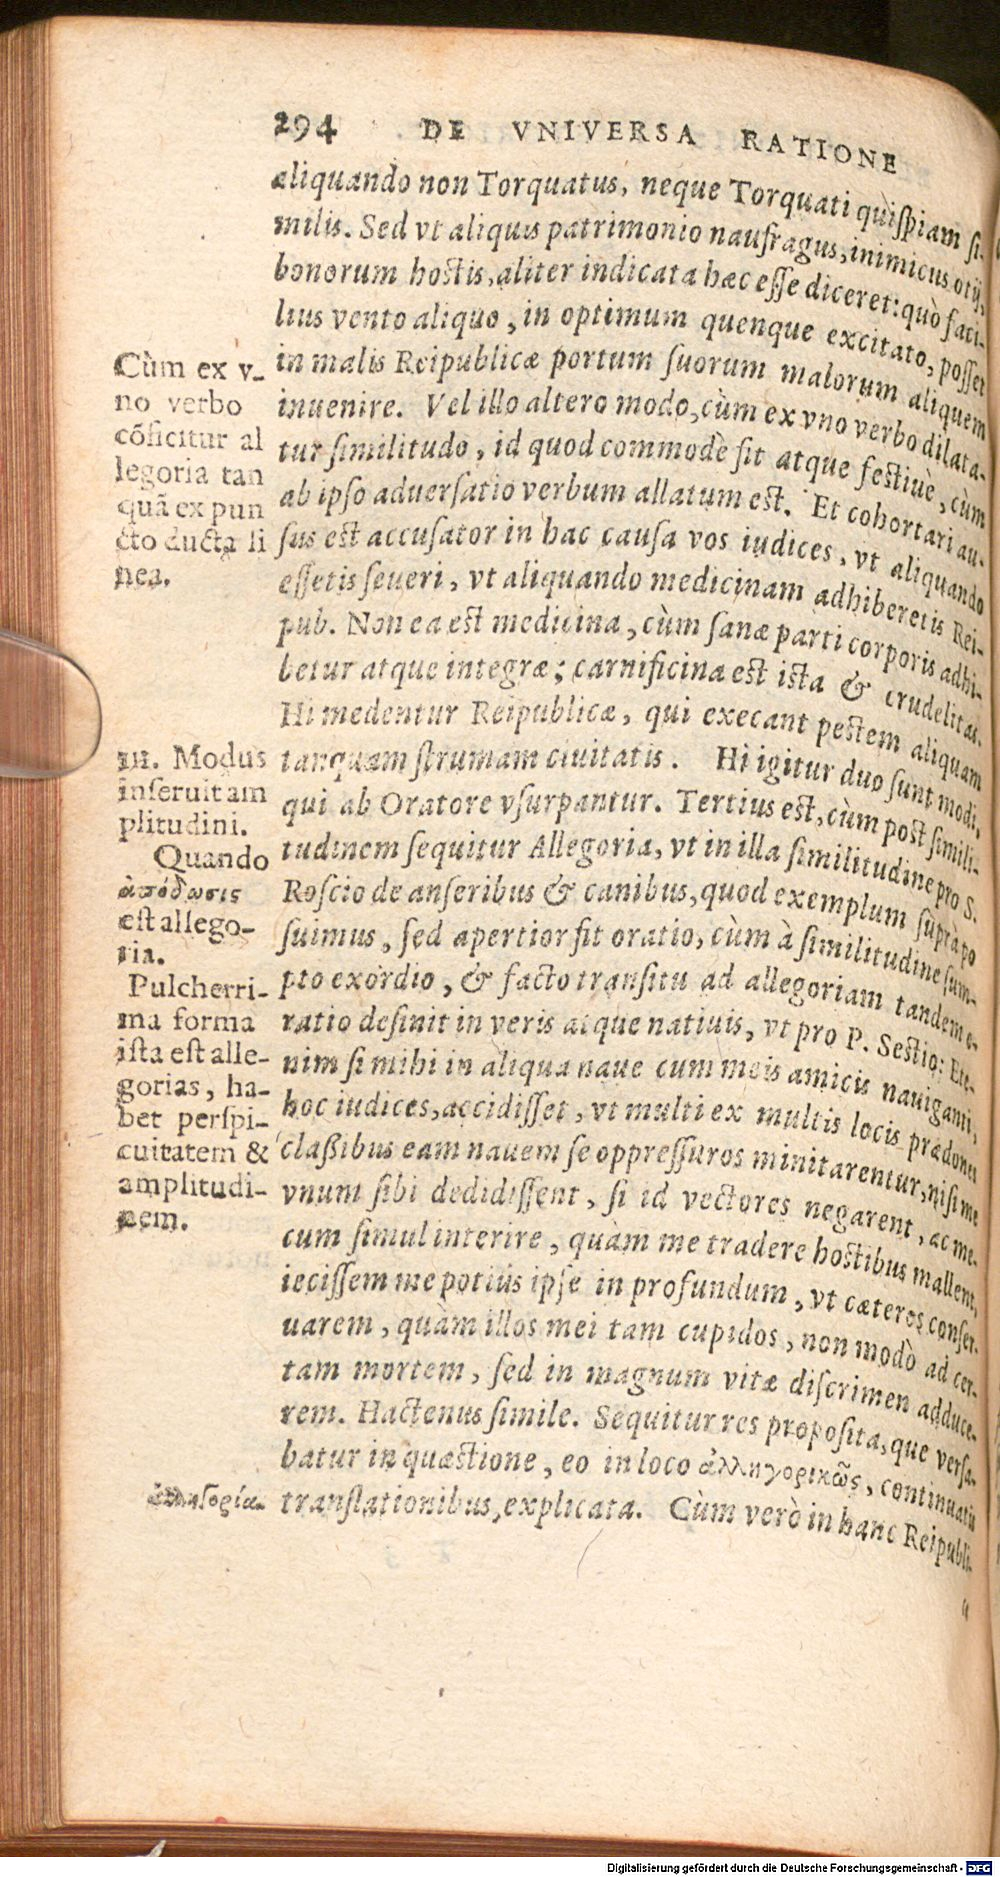 294 DE VNIVERSA RATIONE
aliquando non Torquatus, neque Torquati quispiam si-
milis. Sed vt aliquis patrimonio naufragus, inimicus otij,
bonorum hostis, aliter indicata hæc esse diceret: quò faci-
lius vento aliquo, in optimum quenque excitato, posset
in malis Reipublicæ portum suorum malorum aliquem
inuenire. Vel illo altero modo, cùm ex vno verbo dilata-
tur similitudo, id quod commodè fit atque festiuè, cùm
ab ipso aduersatio verbum allatum est. Et cohortari au-
sus est accusator in hac causa vos iudices, vt aliquando
essetis seueri, vt aliquando medicinam adhiberetis Rei-
pub. Non ea est medicina, cùm sanæ parti corporis adhi-
betur atque integræ; carnificina est ista & crudelitas.
Hi medentur Reipublicæ, qui execant pestem aliquam
tanquam strumam ciuitatis. Hi igitur duo sunt modi,
qui ab Oratore vsurpantur. Tertius est, cùm post simili-
tudinem sequitur Allegoria, vt in illa similitudine pro S.
Roscio de anseribus & canibus, quod exemplum suprà po
suimus, sed apertior fit oratio, cùm à similitudine sum-
pto exordio, & facto transitu ad allegoriam tandem o-
ratio desinit in veris atque natiuis, vt pro P. Sestio: Ete-
nim si mihi in aliqua naue cum meis amicis nauiganti,
hoc iudices, accidisset, vt multi ex multis locis prædones
classibus eam nauem se oppressuros minitarentur, nisi me
vnum sibi dedidissent, si id vectores negarent, ac me-
cum simul interire, quàm me tradere hostibus mallent,
iecissem me potius ipse in profundum, vt cæteros conser-
uarem, quàm illos mei tam cupidos, non modò ad cer-
tam mortem, sed in magnum vitæ discrimen adduce-
rem. Hactenus simile. Sequitur res proposita, que versa-
batur in quæstione, eo in loco ἀλληγορικῶς, continuatis
translationibus, explicata. Cùm verò in hanc Reipubli-
Cùm ex v-
no verbo
cõficitur al
legoria tan
quã ex pun
cto ducta li
nea.
III. Modus
inseruit am
plitudini.
Quando
ἀπόδωσις
est allego-
ria.
Pulcherri-
ma forma
ista est alle-
gorias, ha-
bet perspi-
cuitatem &
amplitudi-
nem.
Digitalisierung gefördert durch die Deutsche Forschungsgemeinschaft - DFG